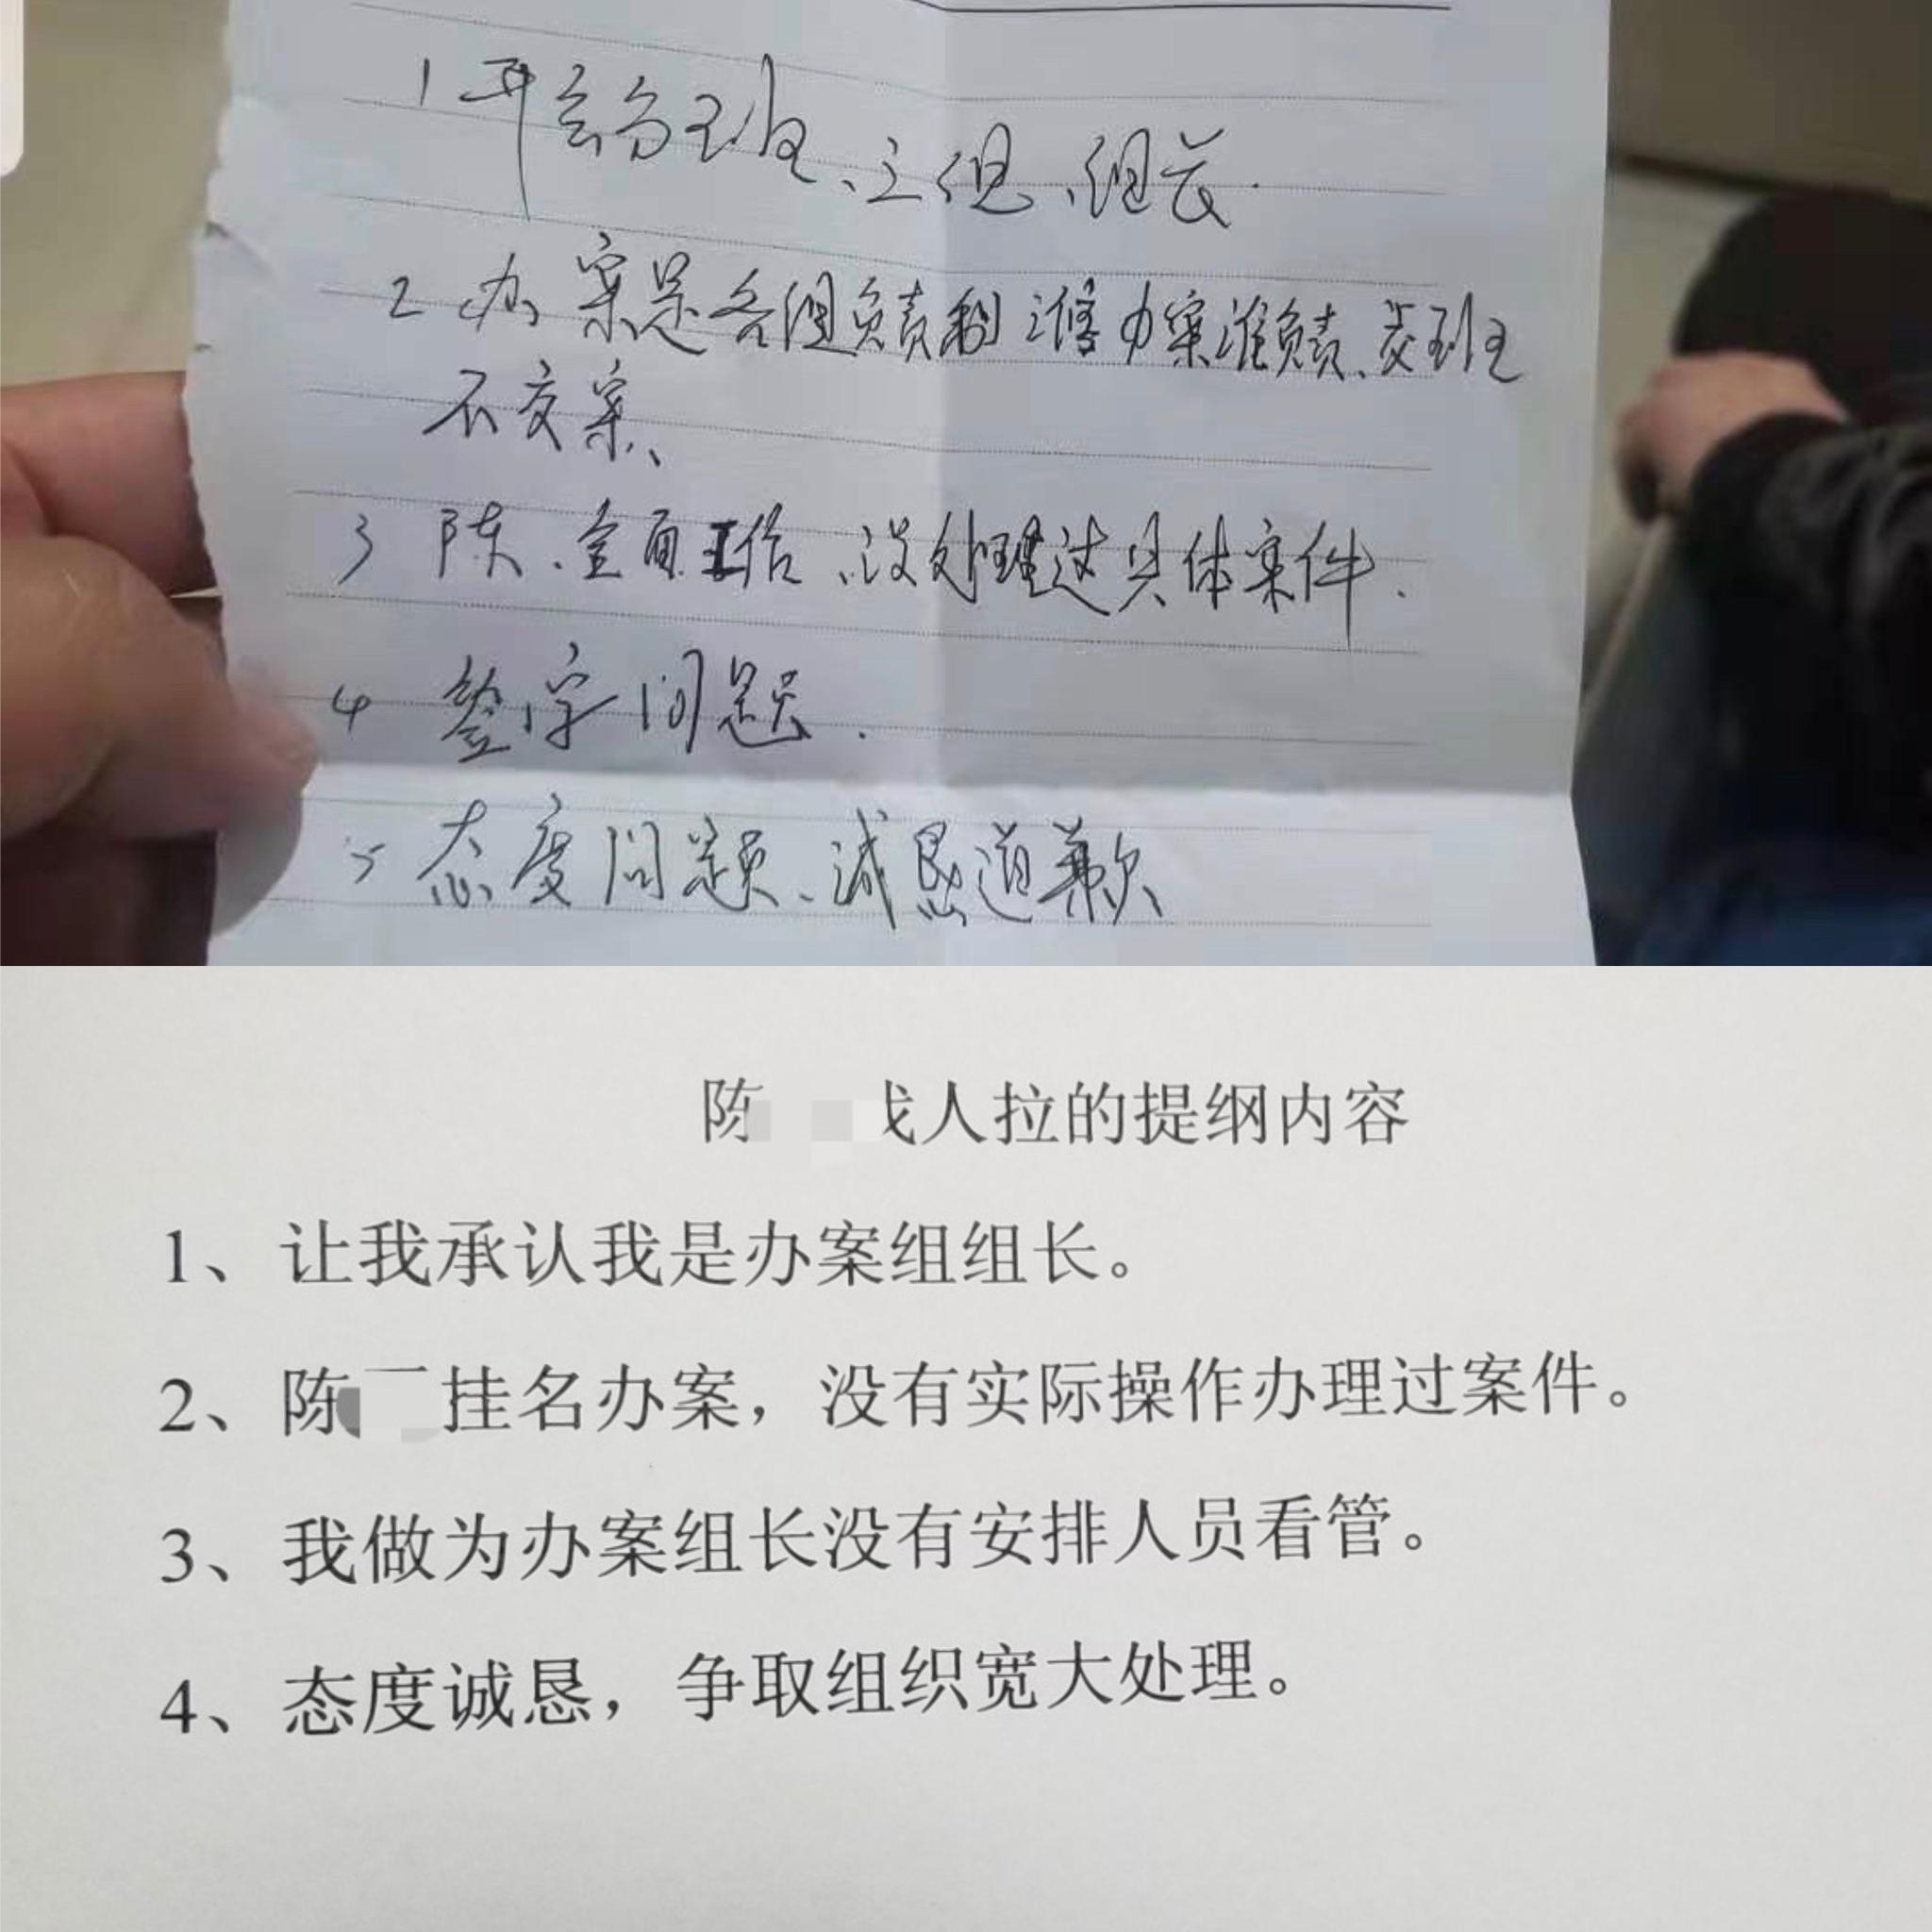 1 开会分班、主组、组长.
2 办案是各组负责制 谁办案谁负责、交班
不交案、
3 陈、全面工作、没处理过具体案件.
4 签字问题.
5 态度问题、诚恳道歉
陈 找人拉的提纲内容
1、让我承认我是办案组组长。
2、陈 挂名办案，没有实际操作办理过案件。
3、我做为办案组长没有安排人员看管。
4、态度诚恳，争取组织宽大处理。